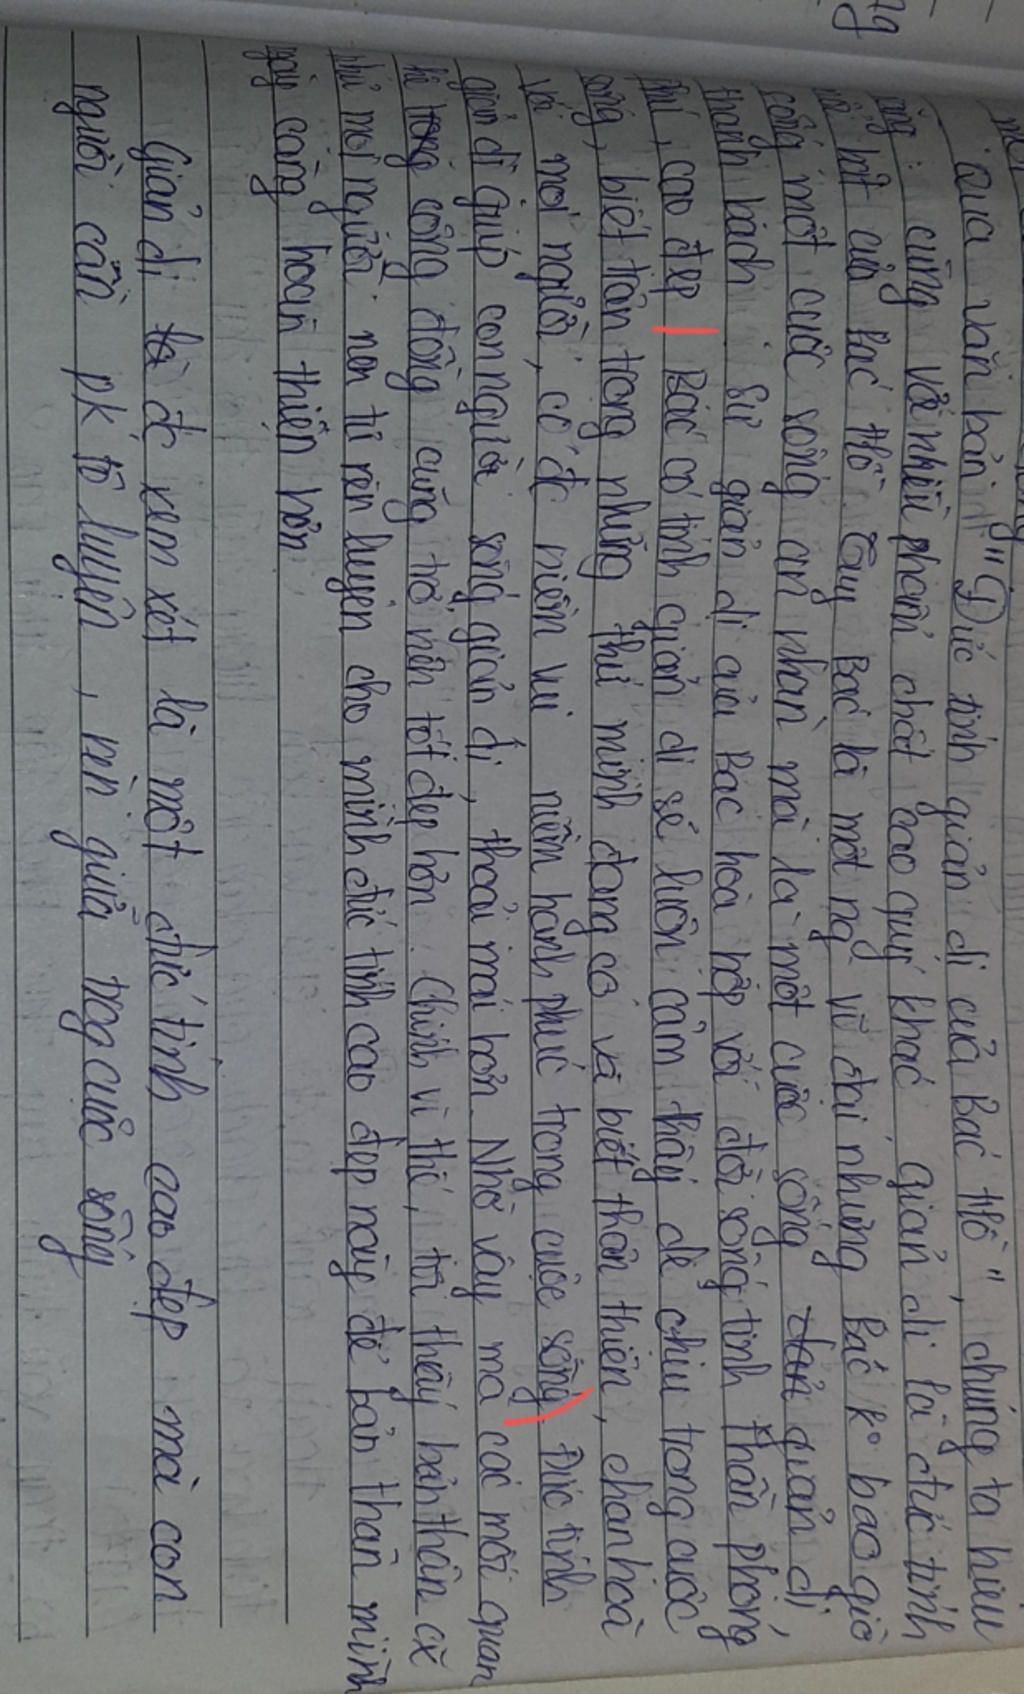 Qua văn bản "Đức tính giản dị của Bác Hồ", chúng ta hiểu
rằng: cùng với nhiều phẩm chất cao quý khác, giản dị là đức tính
nổi bật của Bác Hồ. Tuy Bác là một ng vĩ đại nhưng Bác ko bao giờ
sống một cuộc sống an nhàn mà là một cuộc sống giản dị,
thanh bạch. Sự giản dị của Bác hòa hợp với đời sống tinh thần phong
phú, cao đẹp Bác có tính giản dị sẽ luôn cảm thấy dễ chịu trong cuộc
sống, biết trân trọng những thứ mình đang có và biết thân thiện, chan hoà
với mọi người, có đc niềm vui niềm hạnh phúc trong cuộc sống Đức tính
giản dị giúp con người sống giản dị, thoải mái hơn. Nhờ vậy mà các mối quan
hệ trong cộng đồng cũng trở nên tốt đẹp hơn. Chính vì thế, tôi thấy bản thân cx
như mọi người nên tự rèn luyện cho mình đức tính cao đẹp này để bản thân mình
ngày càng hoàn thiện hơn
Giản dị là đc xem xét là một đức tính cao đẹp mà con
người cần pk tô luyện, gìn giữa trog cuộc sống